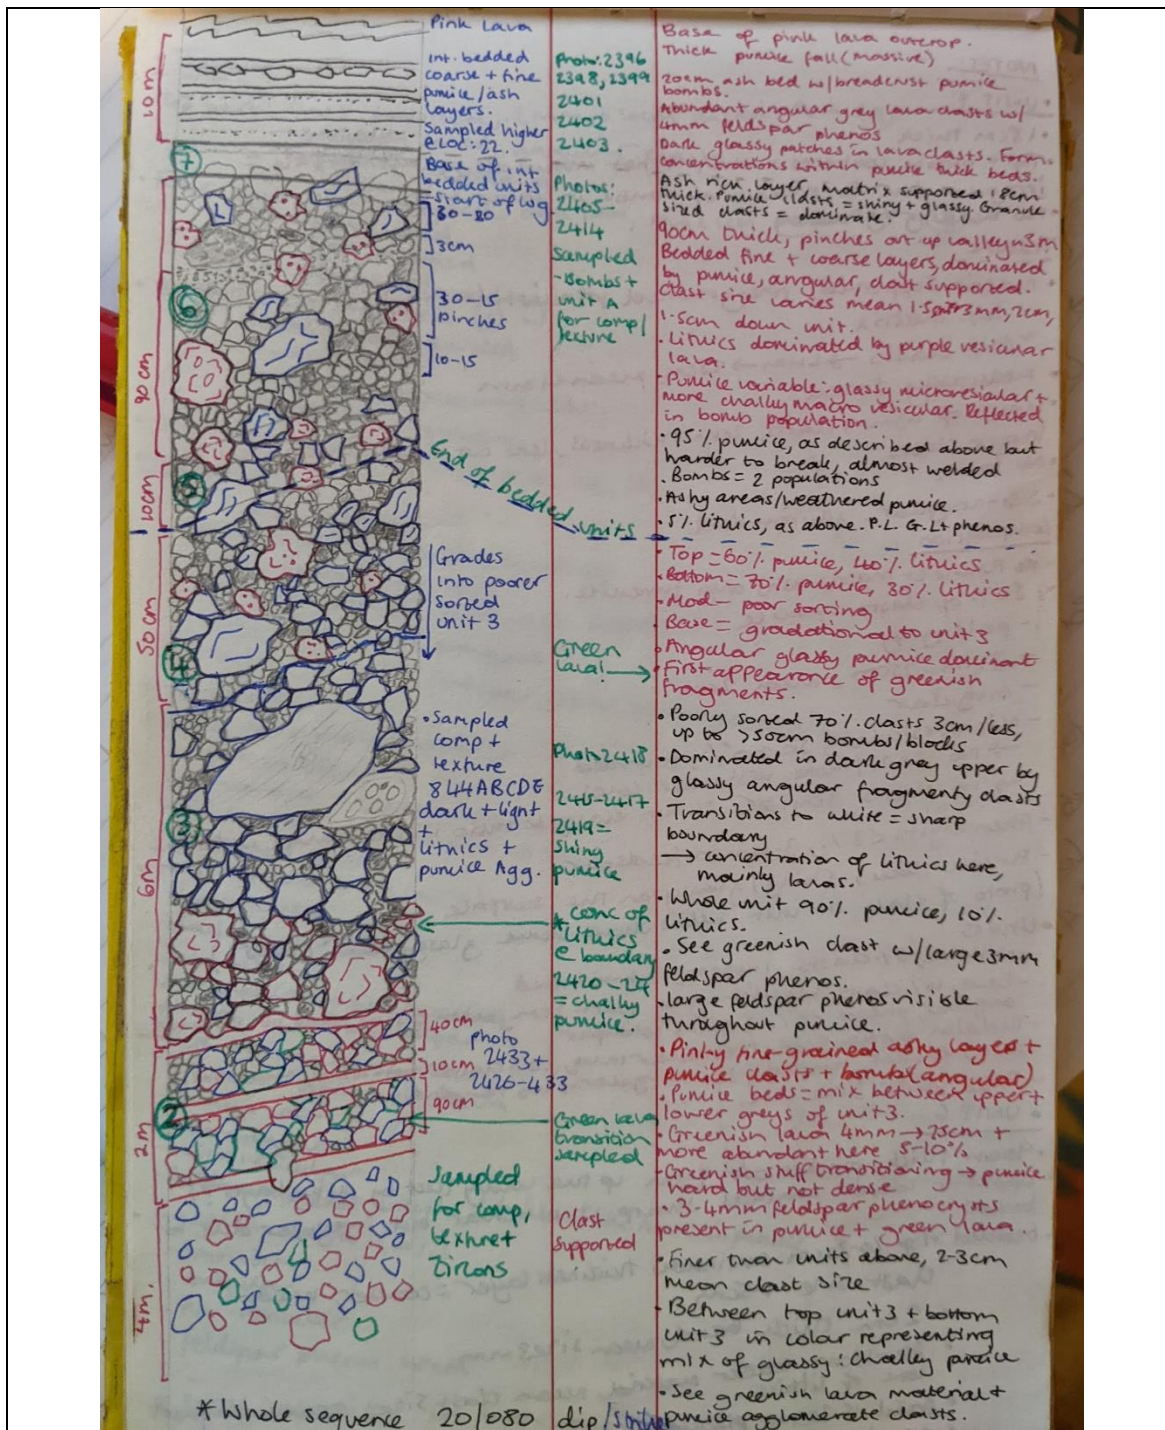 Pink Lava
Int. bedded
coarse + fine
pumice/ash
layers.
Sampled higher
@ Loc: 22.
Base of int
bedded units
= start of log
30-80
3cm
30-15
pinches
10-15
End of bedded units
Grades
into poorer
sorted
unit 3
• Sampled
comp +
texture
844ABCDE
dark + light
+
lithics +
pumice Agg.
40cm
photo
2433+
10cm
2426-433
90cm
Sampled
for comp,
texture +
zircons
10m
7
6
90cm
5
10cm
50cm
4
3
6m
2
2m
4m.
Photo: 2396
2398, 2399
2401
2402
2403.
Photos:
2405-
2414
Sampled
- Bombs +
unit A
for comp/
texture
Green
lava! →
Photo 2418
2415-2417
2419 =
shiny
pumice
* conc of
lithics
@ boundary
2420-27
= chalky
pumice.
Green lava
transition
sampled
Clast
supported
Base of pink lava outcrop.
Thick pumice fall (massive)
20cm ash bed w/breadcrust pumice
bombs.
Abundant angular grey lava clasts w/
4mm feldspar phenos
Dark glassy patches in lava clasts. Form
concentrations within pumice thick beds.
Ash rich layer, matrix supported 18cm
thick. Pumice clasts = shiny + glassy. Granule
sized clasts = dominate.
90cm thick, pinches out up valley ~3m
Bedded fine + coarse layers, dominated
by pumice, angular, clast supported.
Clast size varies mean 1.5cm 3mm, 2cm,
1.5cm down unit.
• Lithics dominated by purple vesicular
lava.
• Pumice variable: glassy microvesicular +
more chalky macro vesicular. Reflected
in bomb population.
• 95% pumice, as described above but
harder to break, almost welded
• Bombs = 2 populations
• Ashy areas/weathered pumice.
• 5% lithics, as above. P.L. G.L + phenos.
• Top = 60% pumice, 40% lithics
• Bottom = 70% pumice, 30% lithics
• Mod - poor sorting
• Base = gradational to unit 3
• Angular glassy pumice dominant
• First appearance of greenish
fragments.
• Poorly sorted 70% clasts 3cm/less,
up to >50cm bombs/blocks
• Dominated in dark grey upper by
glassy angular fragmenty clasts
• Transitions to white = sharp
boundary
→ concentration of lithics here,
mainly lavas.
• Whole unit 90% pumice, 10%
lithics.
• See greenish clast w/large 3mm
feldspar phenos.
• large feldspar phenos visible
throughout pumice.
• Pinky fine-grained ashy layers +
pumice clasts + bombs (angular)
• Pumice beds = mix between upper +
lower greys of unit 3.
• Greenish lava 4mm → 25cm +
more abundant here 5-10%
• Greenish stuff transitioning → pumice
hard but not dense
• 3-4mm feldspar phenocrysts
present in pumice + green lava.
• Finer than units above, 2-3cm
mean clast size
• Between top unit 3 + bottom
unit 3 in color representing
mix of glassy : chalky pumice
• See greenish lava material +
pumice agglomerate clasts.
* Whole sequence 20/080 dip/strike